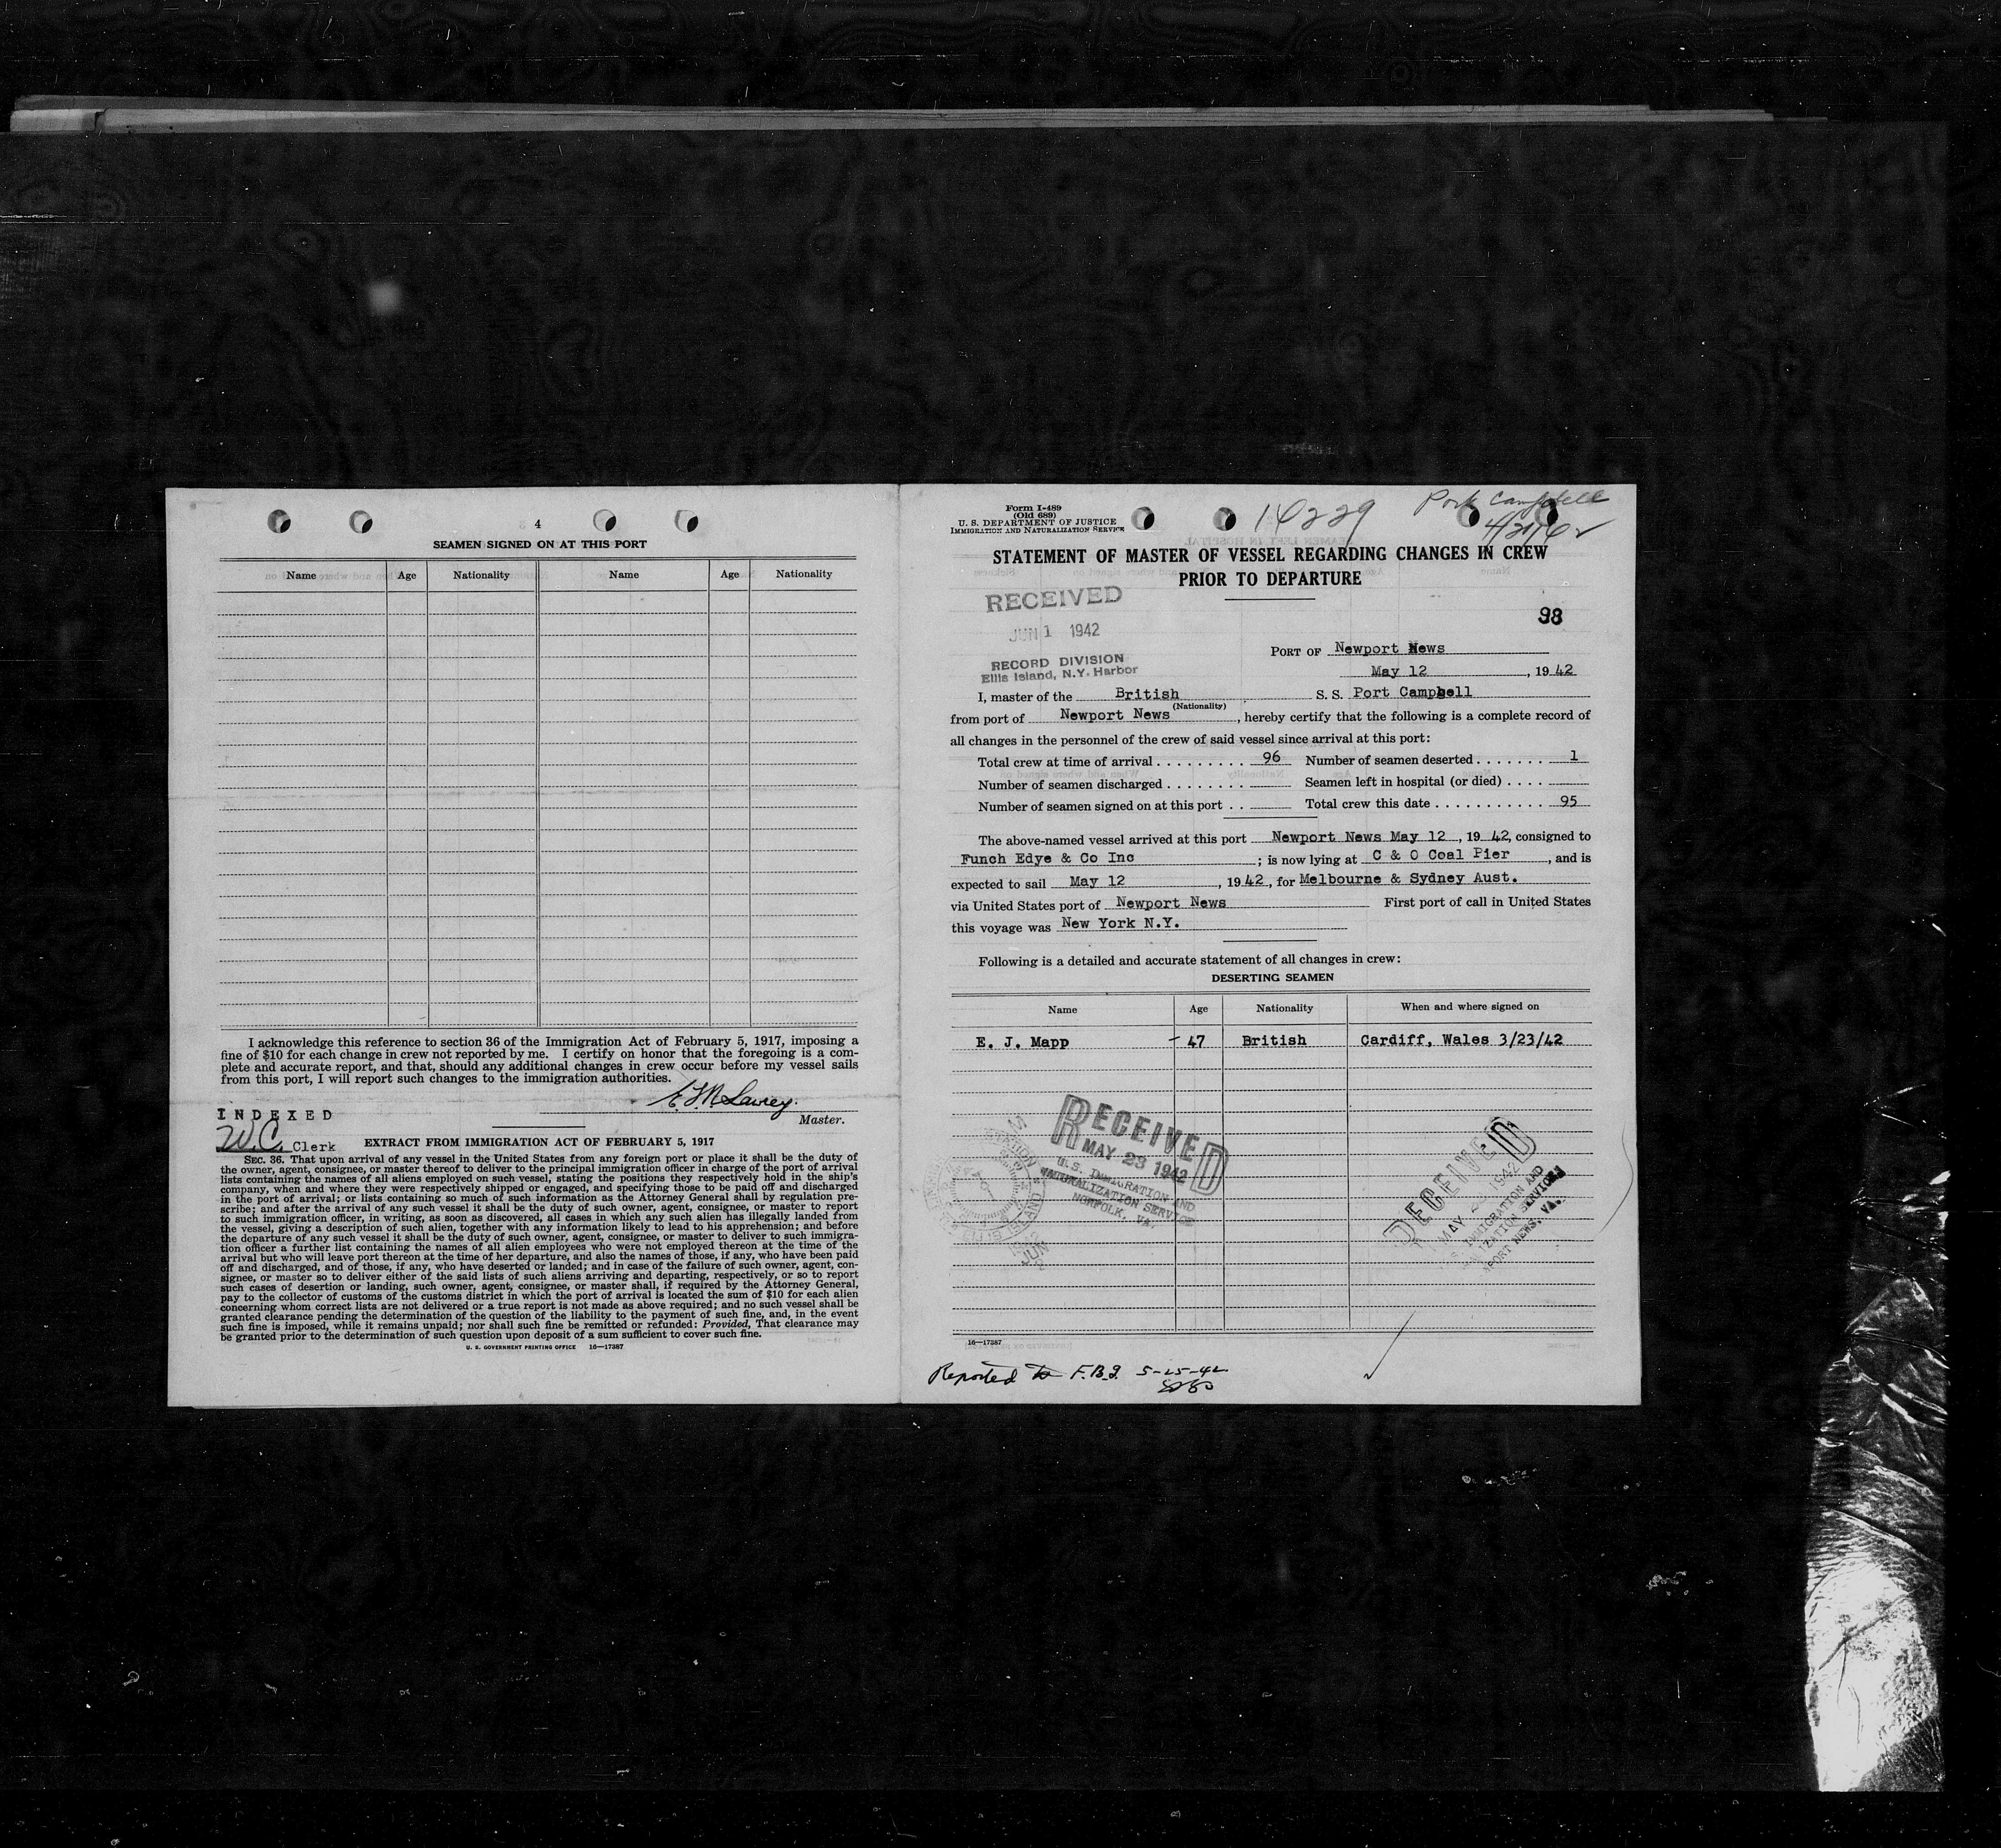 4
SEAMEN SIGNED ON AT THIS PORT
Name Age Nationality Name Age Nationality
I acknowledge this reference to section 36 of the Immigration Act of February 5, 1917, imposing a
fine of $10 for each change in crew not reported by me. I certify on honor that the foregoing is a com-
plete and accurate report, and that, should any additional changes in crew occur before my vessel sails
from this port, I will report such changes to the immigration authorities.
Master.
INDEXED
W.C. Clerk
EXTRACT FROM IMMIGRATION ACT OF FEBRUARY 5, 1917
SEC. 36. That upon arrival of any vessel in the United States from any foreign port or place it shall be the duty of
the owner, agent, consignee, or master thereof to deliver to the principal immigration officer in charge of the port of arrival
lists containing the names of all aliens employed on such vessel, stating the positions they respectively hold in the ship's
company, when and where they were respectively shipped or engaged, and specifying those to be paid off and discharged
in the port of arrival; or lists containing so much of such information as the Attorney General shall by regulation pre-
scribe; and after the arrival of any such vessel it shall be the duty of such owner, agent, consignee, or master to report
to such immigration officer, in writing, as soon as discovered, all cases in which any such alien has illegally landed from
the vessel, giving a description of such alien, together with any information likely to lead to his apprehension; and before
the departure of any such vessel it shall be the duty of such owner, agent, consignee, or master to deliver to such immigra-
tion officer a further list containing the names of all alien employees who were not employed thereon at the time of the
arrival but who will leave port thereon at the time of her departure, and also the names of those, if any, who have been paid
off and discharged, and of those, if any, who have deserted or landed; and in case of the failure of such owner, agent, con-
signee, or master so to deliver either of the said lists of such aliens arriving and departing, respectively, or so to report
such cases of desertion or landing, such owner, agent, consignee, or master shall, if required by the Attorney General,
pay to the collector of customs of the customs district in which the port of arrival is located the sum of $10 for each alien
concerning whom correct lists are not delivered or a true report is not made as above required; and no such vessel shall be
granted clearance pending the determination of the question of the liability to the payment of such fine, and, in the event
such fine is imposed, while it remains unpaid; nor shall such fine be remitted or refunded: Provided, That clearance may
be granted prior to the determination of such question upon deposit of a sum sufficient to cover such fine.
U. S. GOVERNMENT PRINTING OFFICE 16—17387
Form I-489
(Old 689)
U. S. DEPARTMENT OF JUSTICE
IMMIGRATION AND NATURALIZATION SERVICE
Port Campbell
STATEMENT OF MASTER OF VESSEL REGARDING CHANGES IN CREW
PRIOR TO DEPARTURE
RECEIVED
JUN 1 1942
RECORD DIVISION
Ellis Island, N.Y. Harbor
98
PORT OF Newport News
May 12, 1942
I, master of the British S. S. Port Campbell
(Nationality)
from port of Newport News, hereby certify that the following is a complete record of
all changes in the personnel of the crew of said vessel since arrival at this port:
Total crew at time of arrival 96 Number of seamen deserted 1
Number of seamen discharged Seamen left in hospital (or died)
Number of seamen signed on at this port Total crew this date 95
The above-named vessel arrived at this port Newport News May 12, 1942, consigned to
Funch Edye & Co Inc; is now lying at C & O Coal Pier, and is
expected to sail May 12, 1942, for Melbourne & Sydney Aust.
via United States port of Newport News First port of call in United States
this voyage was New York N.Y.
Following is a detailed and accurate statement of all changes in crew:
DESERTING SEAMEN
Name Age Nationality When and where signed on
E. J. Mapp - 47 British Cardiff, Wales 3/23/42
RECEIVED
MAY 23 1942
U.S. IMMIGRATION AND
NATURALIZATION SERVICE
NORFOLK, VA.
RECEIVED
MAY 1942
IMMIGRATION AND
SERVICE
NEWS, VA.
16—17387
Reported to F.B.I. 5-25-42